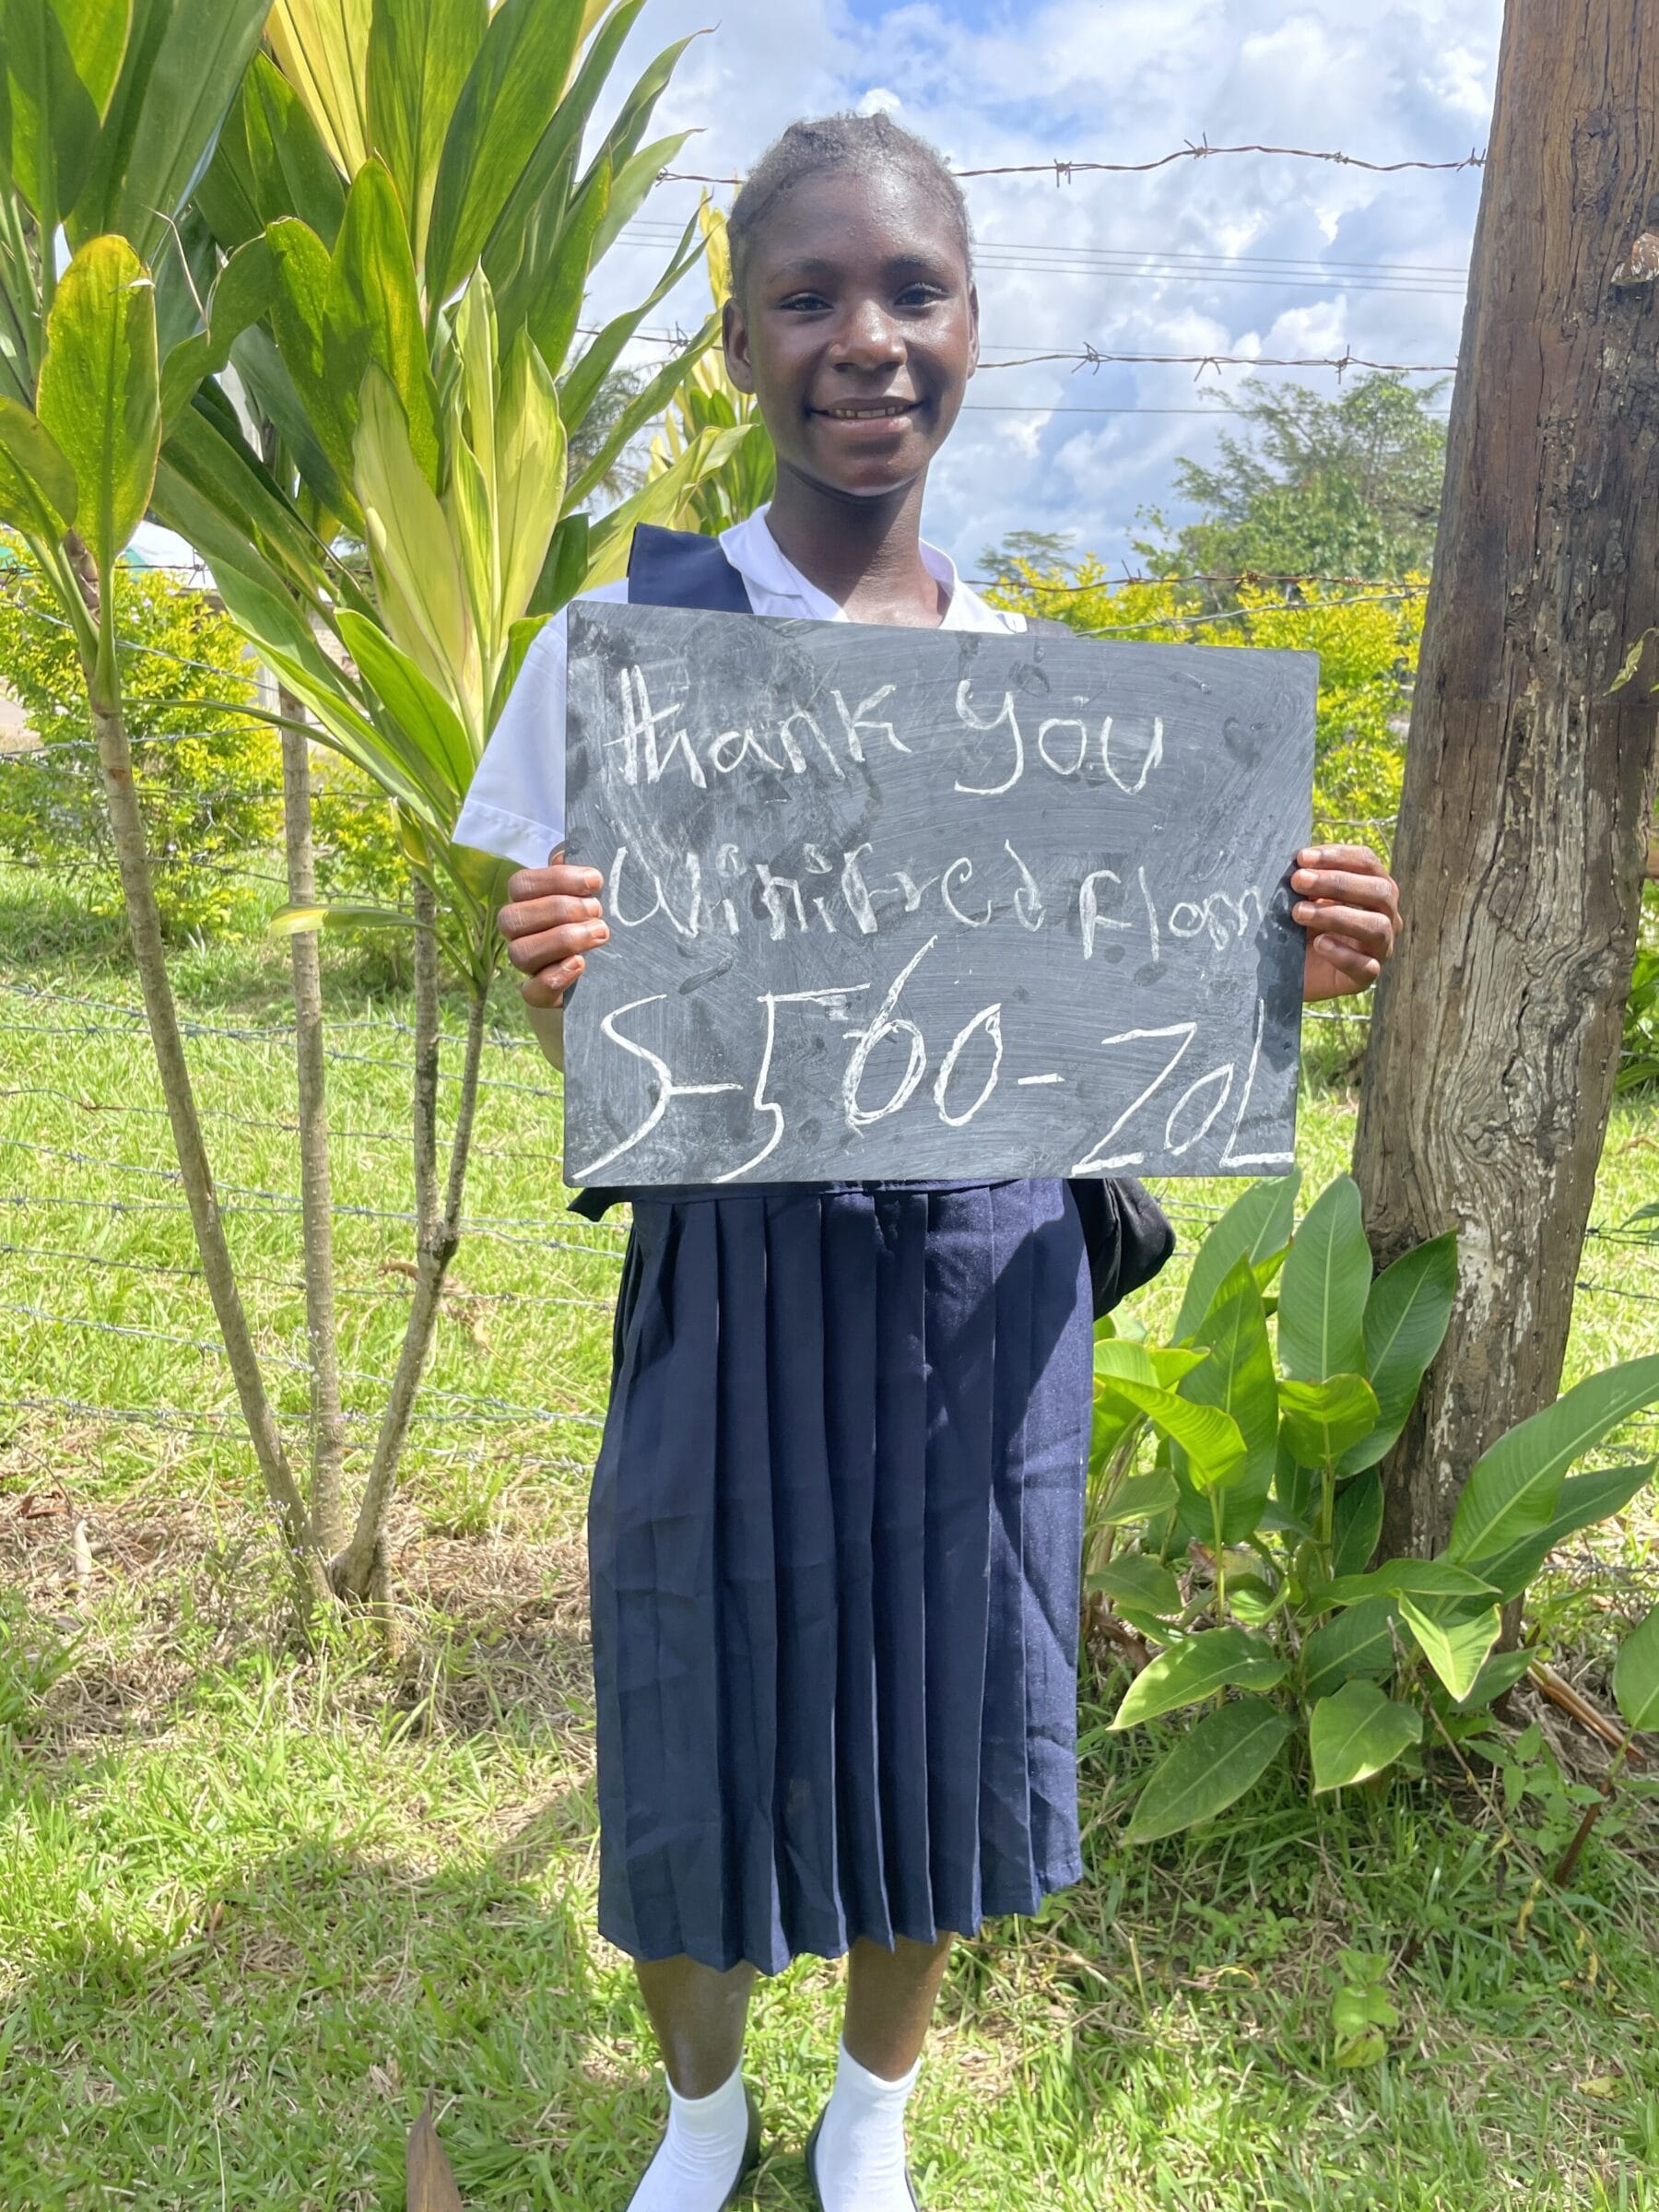 thank you
Winifred from
S-560-ZOL